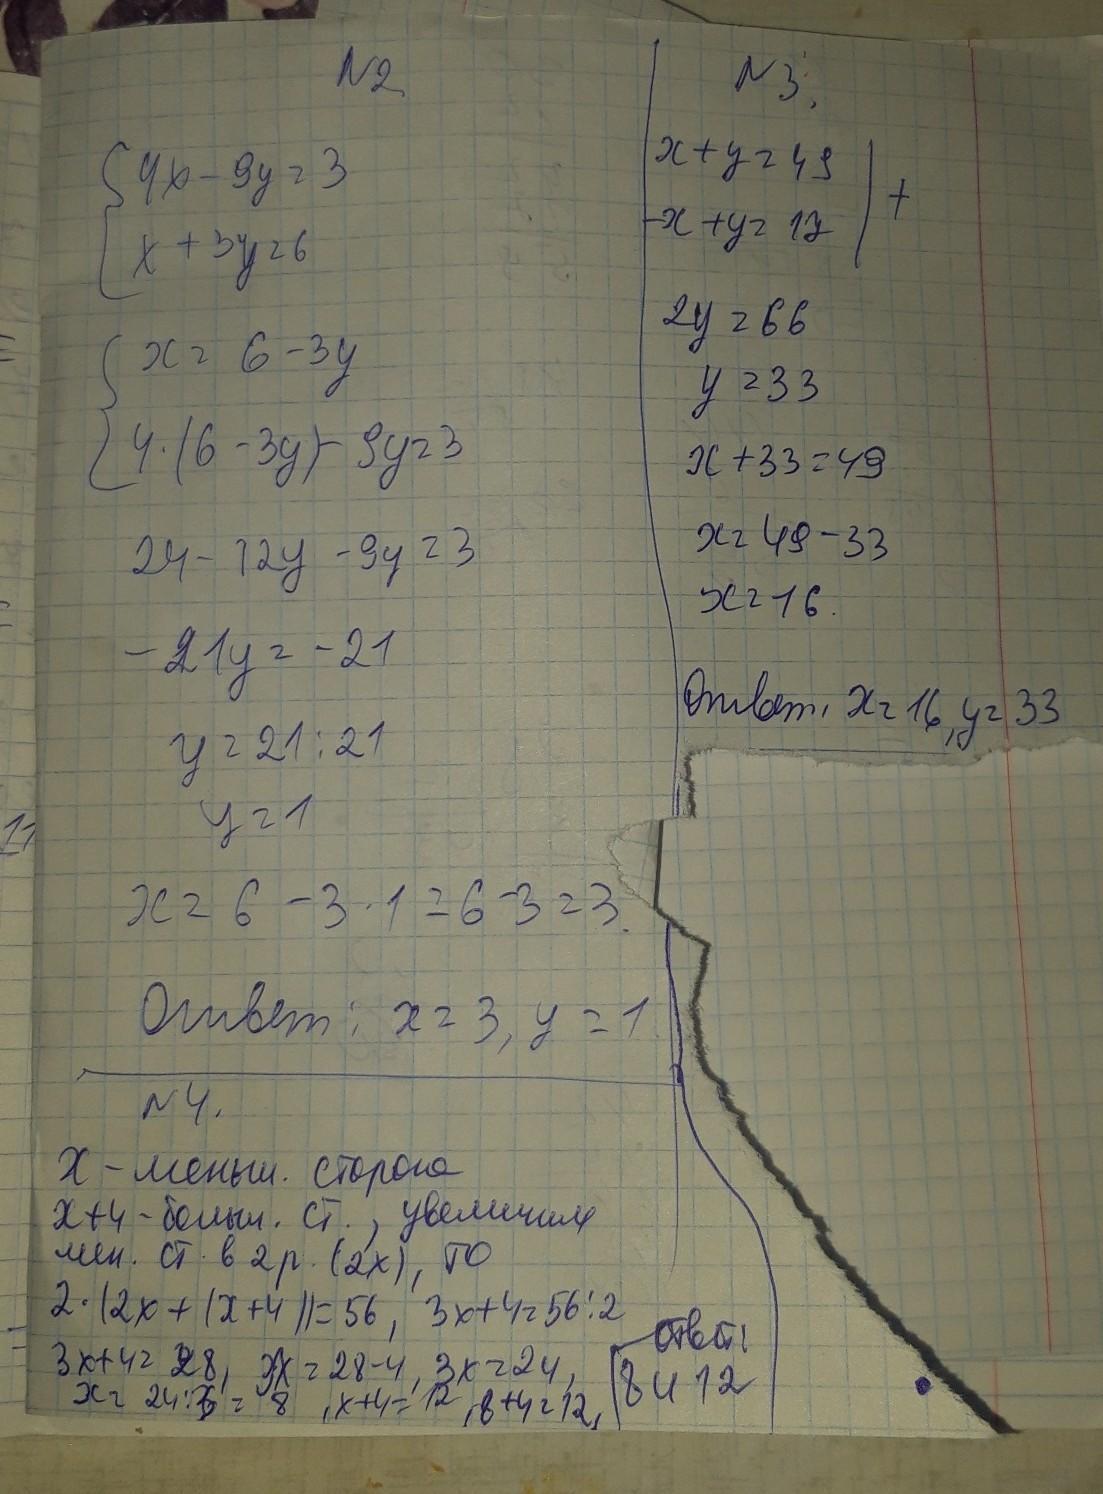 N2
{4x - 9y = 3
x + 3y = 6
{x = 6 - 3y
4·(6 - 3y) - 9y = 3
24 - 12y - 9y = 3
-21y = -21
y = 21:21
y = 1
x = 6 - 3·1 = 6-3 = 3.
Ответ: x = 3, y = 1.
N3.
x + y = 49
-x + y = 17 | +
2y = 66
y = 33
x + 33 = 49
x = 49 - 33
x = 16.
Ответ. x = 16, y = 33
N4.
x - меньш. сторона
x+4 - больш. ст., увеличим
мен. ст. в 2 р. (2x), то
2·(2x + (x+4)) = 56, 3x+4 = 56:2
3x+4 = 28, 3x = 28-4, 3x = 24,
x = 24:3 = 8, x+4 = 12, 8+4 = 12,
ответ:
8 и 12